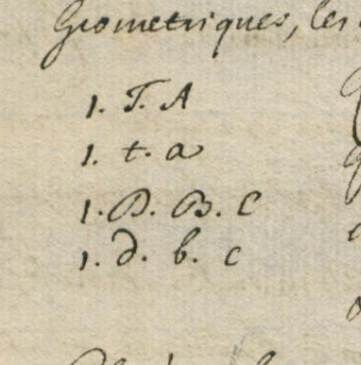 Geometriques, les
1. T. A
1. t. a
1. D. B. C
1. d. b. c